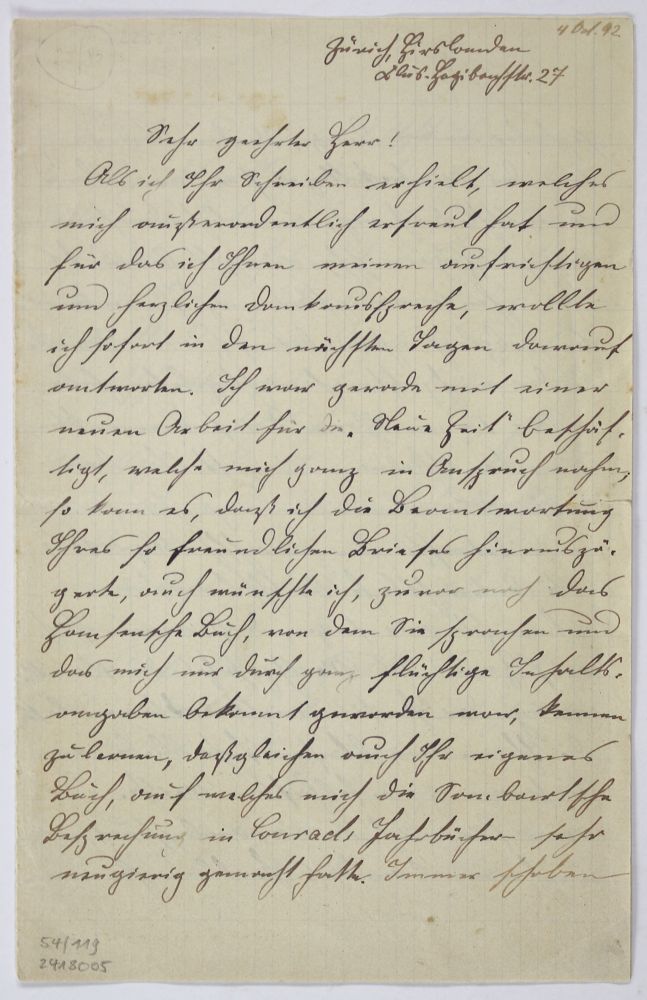 4 Oct. 92
Zürich, Hirslanden
Klus-Hegibachstr. 27
Sehr geehrter Herr!
Als ich Ihr Schreiben erhielt, welches
mich außerordentlich erfreut hat und
für das ich Ihnen meinen aufrichtigen
und herzlichen Dank ausspreche, wollte
ich sofort in den nächsten Tagen darauf
antworten. Ich war gerade mit einer
neuen Arbeit für die „Neue Zeit" beschäf-
tigt, welche mich ganz in Anspruch nahm,
so kam es, daß ich die Beantwortung
Ihres so freundlichen Briefes hinauszö-
gerte, auch wünschte ich, zuvor noch das
Hansensche Buch, von dem Sie sprachen und
das mich nur durch ganz flüchtige Inhalts-
angaben bekannt geworden war, kennen
zu lernen, deßgleichen auch Ihr eigenes
Buch, auf welches mich die Sombartsche
Besprechung in Conrads Jahrbücher sehr
neugierig gemacht hatte. Immer schoben
54/119
2418005